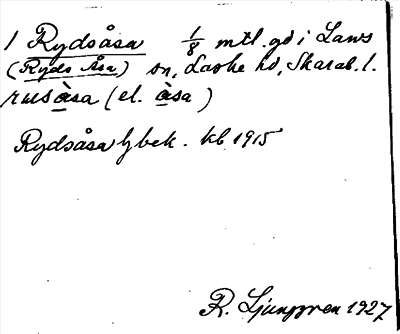 1 Rydsåsa 1/8 mtl. gd i Laws
(Ryds Åsa) sn, Laske hd, Skarab. l.
rusàsa (el. àsa)
Rydsåsa Ljbek. kb 1915
R. Ljunggren 1927